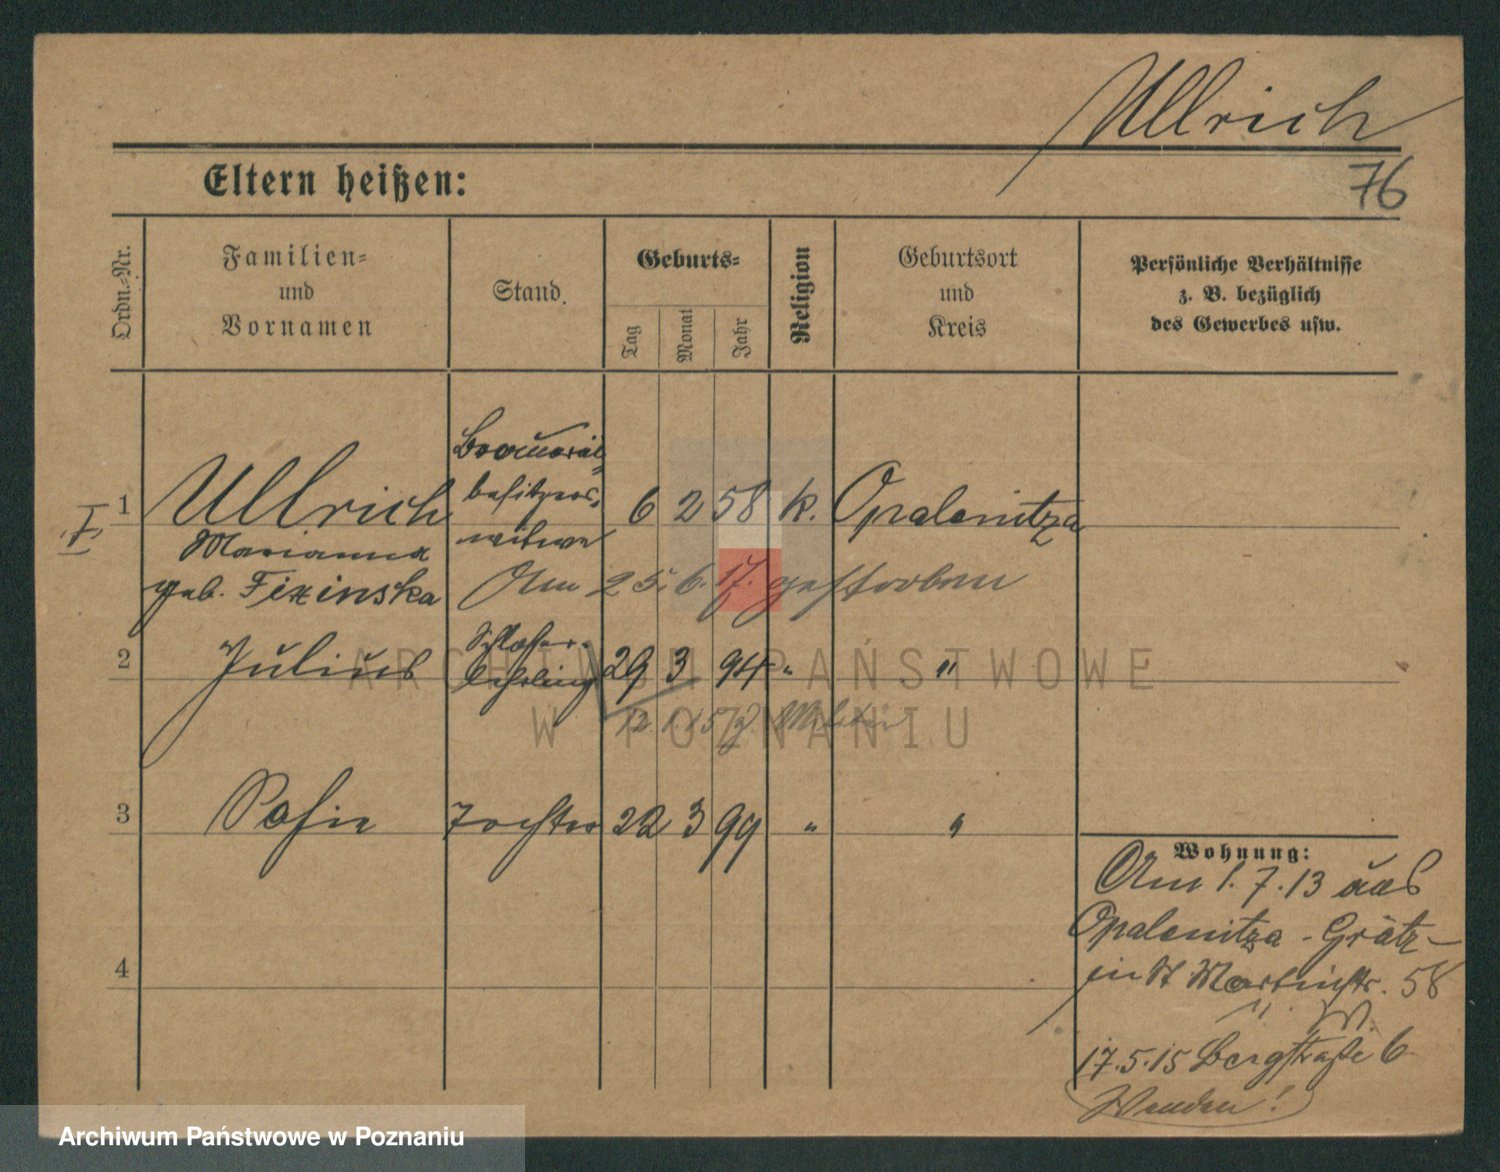 Ullrich
76
Eltern heißen:
Ordn.-Nr.
Familien- und Vornamen
Stand.
Geburts-
Tag
Monat
Jahr
Religion
Geburtsort und Kreis
Persönliche Verhältnisse z. B. bezüglich des Gewerbes usw.
I
1 Ullrich Marianna geb. Fixinska
Brauerei-
besitzers-
witwe
6 2 58 k. Opalenitza
Am 25. 6. 17. gestorben
2 Julius
Schlosser-
lehrling
29 3 94 " "
12. 1. 15 z. Militär
3 Sofie Tochter 22 3 99 " "
4
Wohnung:
Am 1. 7. 13 aus
Opalenitza - Grätz -
in St Martinstr. 58
17.5.15 Bergstraße 6
Wenden!
ARCHIWUM PAŃSTWOWE
W POZNANIU
Archiwum Państwowe w Poznaniu